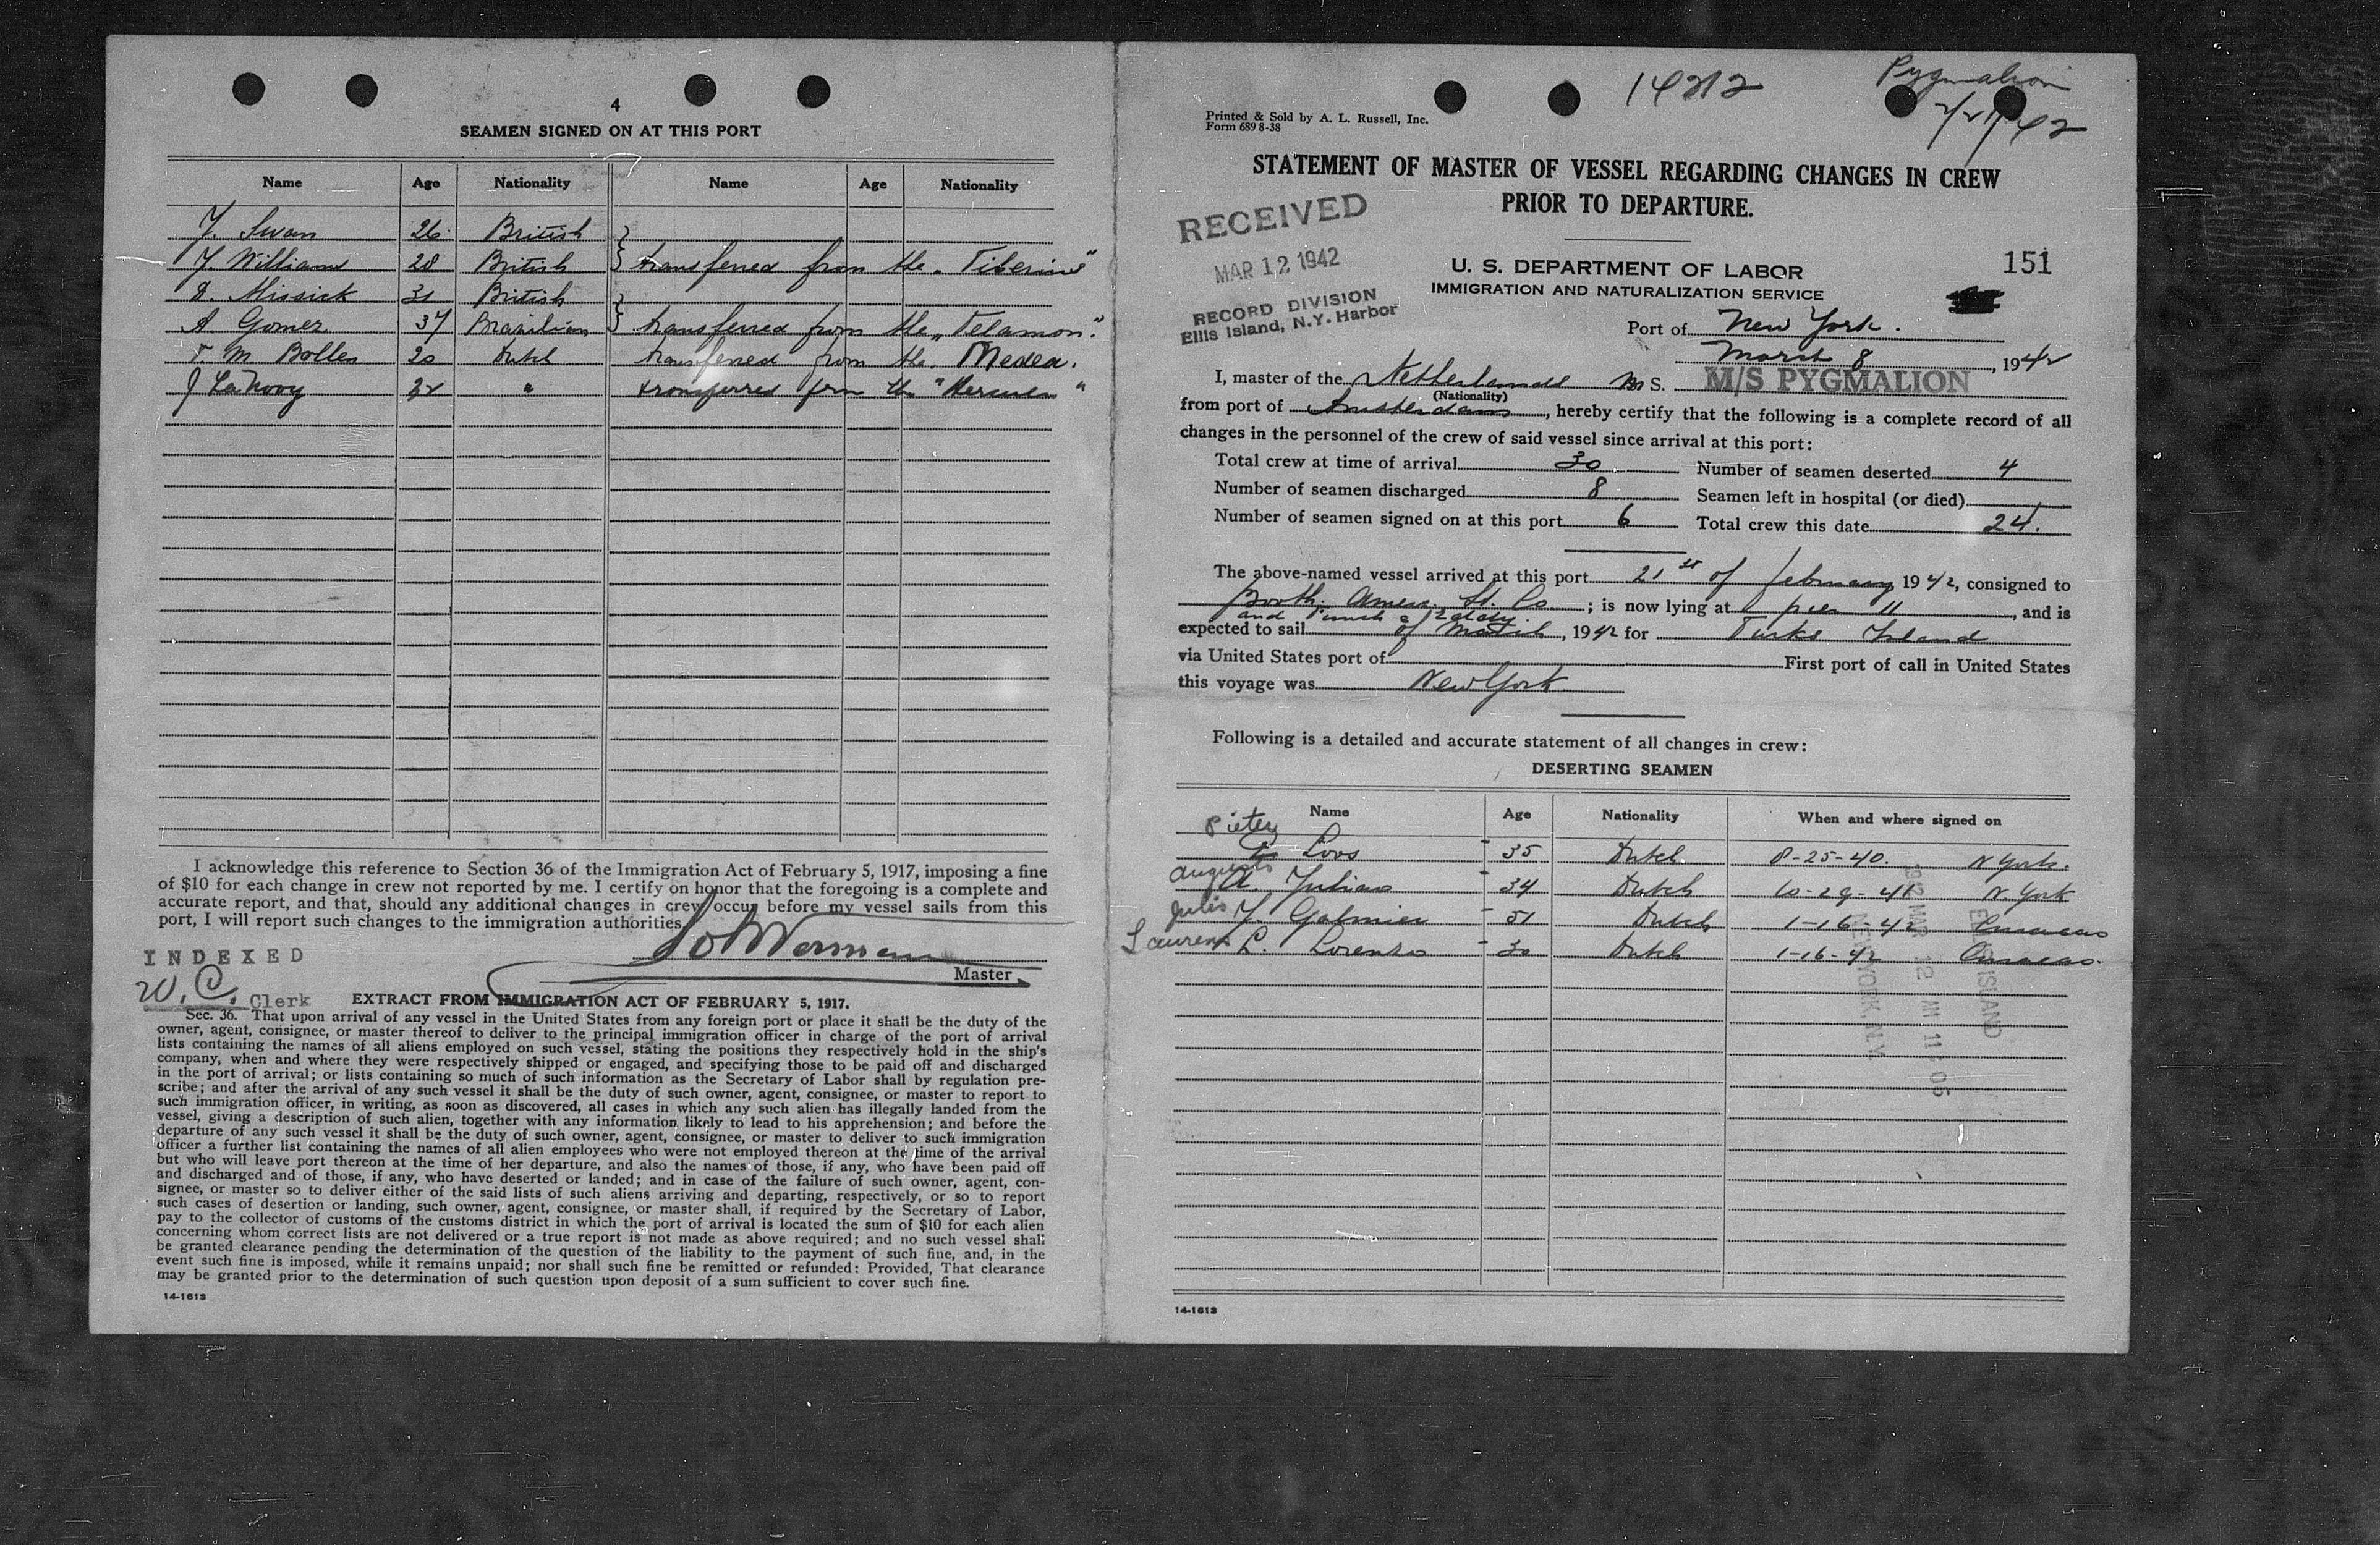 4
SEAMEN SIGNED ON AT THIS PORT
Name Age Nationality Name Age Nationality
J. Swan 26 British
J. Williams 28 British transferred from the "Tiberius"
D. Missick 31 British
A. Gomez 37 Brazilian transferred from the "Telamon"
M. Bolles 20 Dutch transferred from the Medea.
J 32 " transferred from the "Hercules"
I acknowledge this reference to Section 36 of the Immigration Act of February 5, 1917, imposing a fine
of $10 for each change in crew not reported by me. I certify on honor that the foregoing is a complete and
accurate report, and that, should any additional changes in crew occur before my vessel sails from this
port, I will report such changes to the immigration authorities.
INDEXED
Master.
W. C. Clerk
EXTRACT FROM IMMIGRATION ACT OF FEBRUARY 5, 1917.
Sec. 36. That upon arrival of any vessel in the United States from any foreign port or place it shall be the duty of the
owner, agent, consignee, or master thereof to deliver to the principal immigration officer in charge of the port of arrival
lists containing the names of all aliens employed on such vessel, stating the positions they respectively hold in the ship's
company, when and where they were respectively shipped or engaged, and specifying those to be paid off and discharged
in the port of arrival; or lists containing so much of such information as the Secretary of Labor shall by regulation pre-
scribe; and after the arrival of any such vessel it shall be the duty of such owner, agent, consignee, or master to report to
such immigration officer, in writing, as soon as discovered, all cases in which any such alien has illegally landed from the
vessel, giving a description of such alien, together with any information likely to lead to his apprehension; and before the
departure of any such vessel it shall be the duty of such owner, agent, consignee, or master to deliver to such immigration
officer a further list containing the names of all alien employees who were not employed thereon at the time of the arrival
but who will leave port thereon at the time of her departure, and also the names of those, if any, who have been paid off
and discharged and of those, if any, who have deserted or landed; and in case of the failure of such owner, agent, con-
signee, or master so to deliver either of the said lists of such aliens arriving and departing, respectively, or so to report
such cases of desertion or landing, such owner, agent, consignee, or master shall, if required by the Secretary of Labor,
pay to the collector of customs of the customs district in which the port of arrival is located the sum of $10 for each alien
concerning whom correct lists are not delivered or a true report is not made as above required; and no such vessel shall
be granted clearance pending the determination of the question of the liability to the payment of such fine, and, in the
event such fine is imposed, while it remains unpaid; nor shall such fine be remitted or refunded: Provided, That clearance
may be granted prior to the determination of such question upon deposit of a sum sufficient to cover such fine.
14-1613
14212
Pygmalion
2/21/42
Printed & Sold by A. L. Russell, Inc.
Form 689 8-38
STATEMENT OF MASTER OF VESSEL REGARDING CHANGES IN CREW
PRIOR TO DEPARTURE.
RECEIVED
MAR 12 1942
RECORD DIVISION
Ellis Island, N.Y. Harbor
U. S. DEPARTMENT OF LABOR
IMMIGRATION AND NATURALIZATION SERVICE
151
Port of New York.
March 8, 1942
I, master of the Netherlands M S. M/S PYGMALION
(Nationality)
from port of Amsterdam, hereby certify that the following is a complete record of all
changes in the personnel of the crew of said vessel since arrival at this port:
Total crew at time of arrival 30 Number of seamen deserted 4
Number of seamen discharged 8 Seamen left in hospital (or died)
Number of seamen signed on at this port 6 Total crew this date 24.
The above-named vessel arrived at this port 21st of February 1942, consigned to
Booth Amer. St. Co; is now lying at pier 11, and is
expected to sail of March, 1942 for Turks Island
via United States port of First port of call in United States
this voyage was New York
Following is a detailed and accurate statement of all changes in crew:
DESERTING SEAMEN
Name Age Nationality When and where signed on
Pieter Loos 35 Dutch 8-25-40. N York.
A. Juliano 34 Dutch 10-29-41 N. York
51 Dutch 1-16-42 Curacao
L. Lorenzo 30 Dutch 1-16-42 Curacao.
1942 MAR 12 AM 11 05
ISLAND
NEW YORK, N.Y.
14-1613